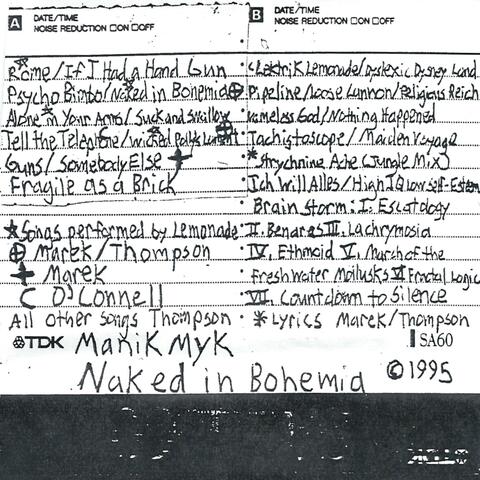 A DATE/TIME
NOISE REDUCTION □ON □OFF
Rome/If I Had a Hand Gun
Psycho Bimbo/Naked in Bohemia⊕
Alone in Your Arms/Suck and Swallow
Tell the Telephone/Wicked Polly's Lament
Guns/Somebody Else +
Fragile as a Brick
*Songs performed by Lemonade
⊕ Marek/Thompson
+ Marek
C O'Connell
All other songs Thompson
B DATE/TIME
NOISE REDUCTION □ON □OFF
Lektrik Lemonade/Dyslexic Disney Land
Pipeline/Loose Cannon/Religious Reich
Nameless God/Nothing Happened
Tachistoscope/Maiden Voyage
*Strychnine Ache (Jungle Mix)
Ich Will Alles/High IQ Low Self-Esteem
Brain Storm: I. Escatology
II. Benares III. Lachrymosia
IV. Ethmoid V. March of the
Freshwater Mollusks VI Fractal Logic
VII. Countdown to Silence
*Lyrics Marek/Thompson
TDK Manik Myk SA60
Naked in Bohemia ©1995
TDK